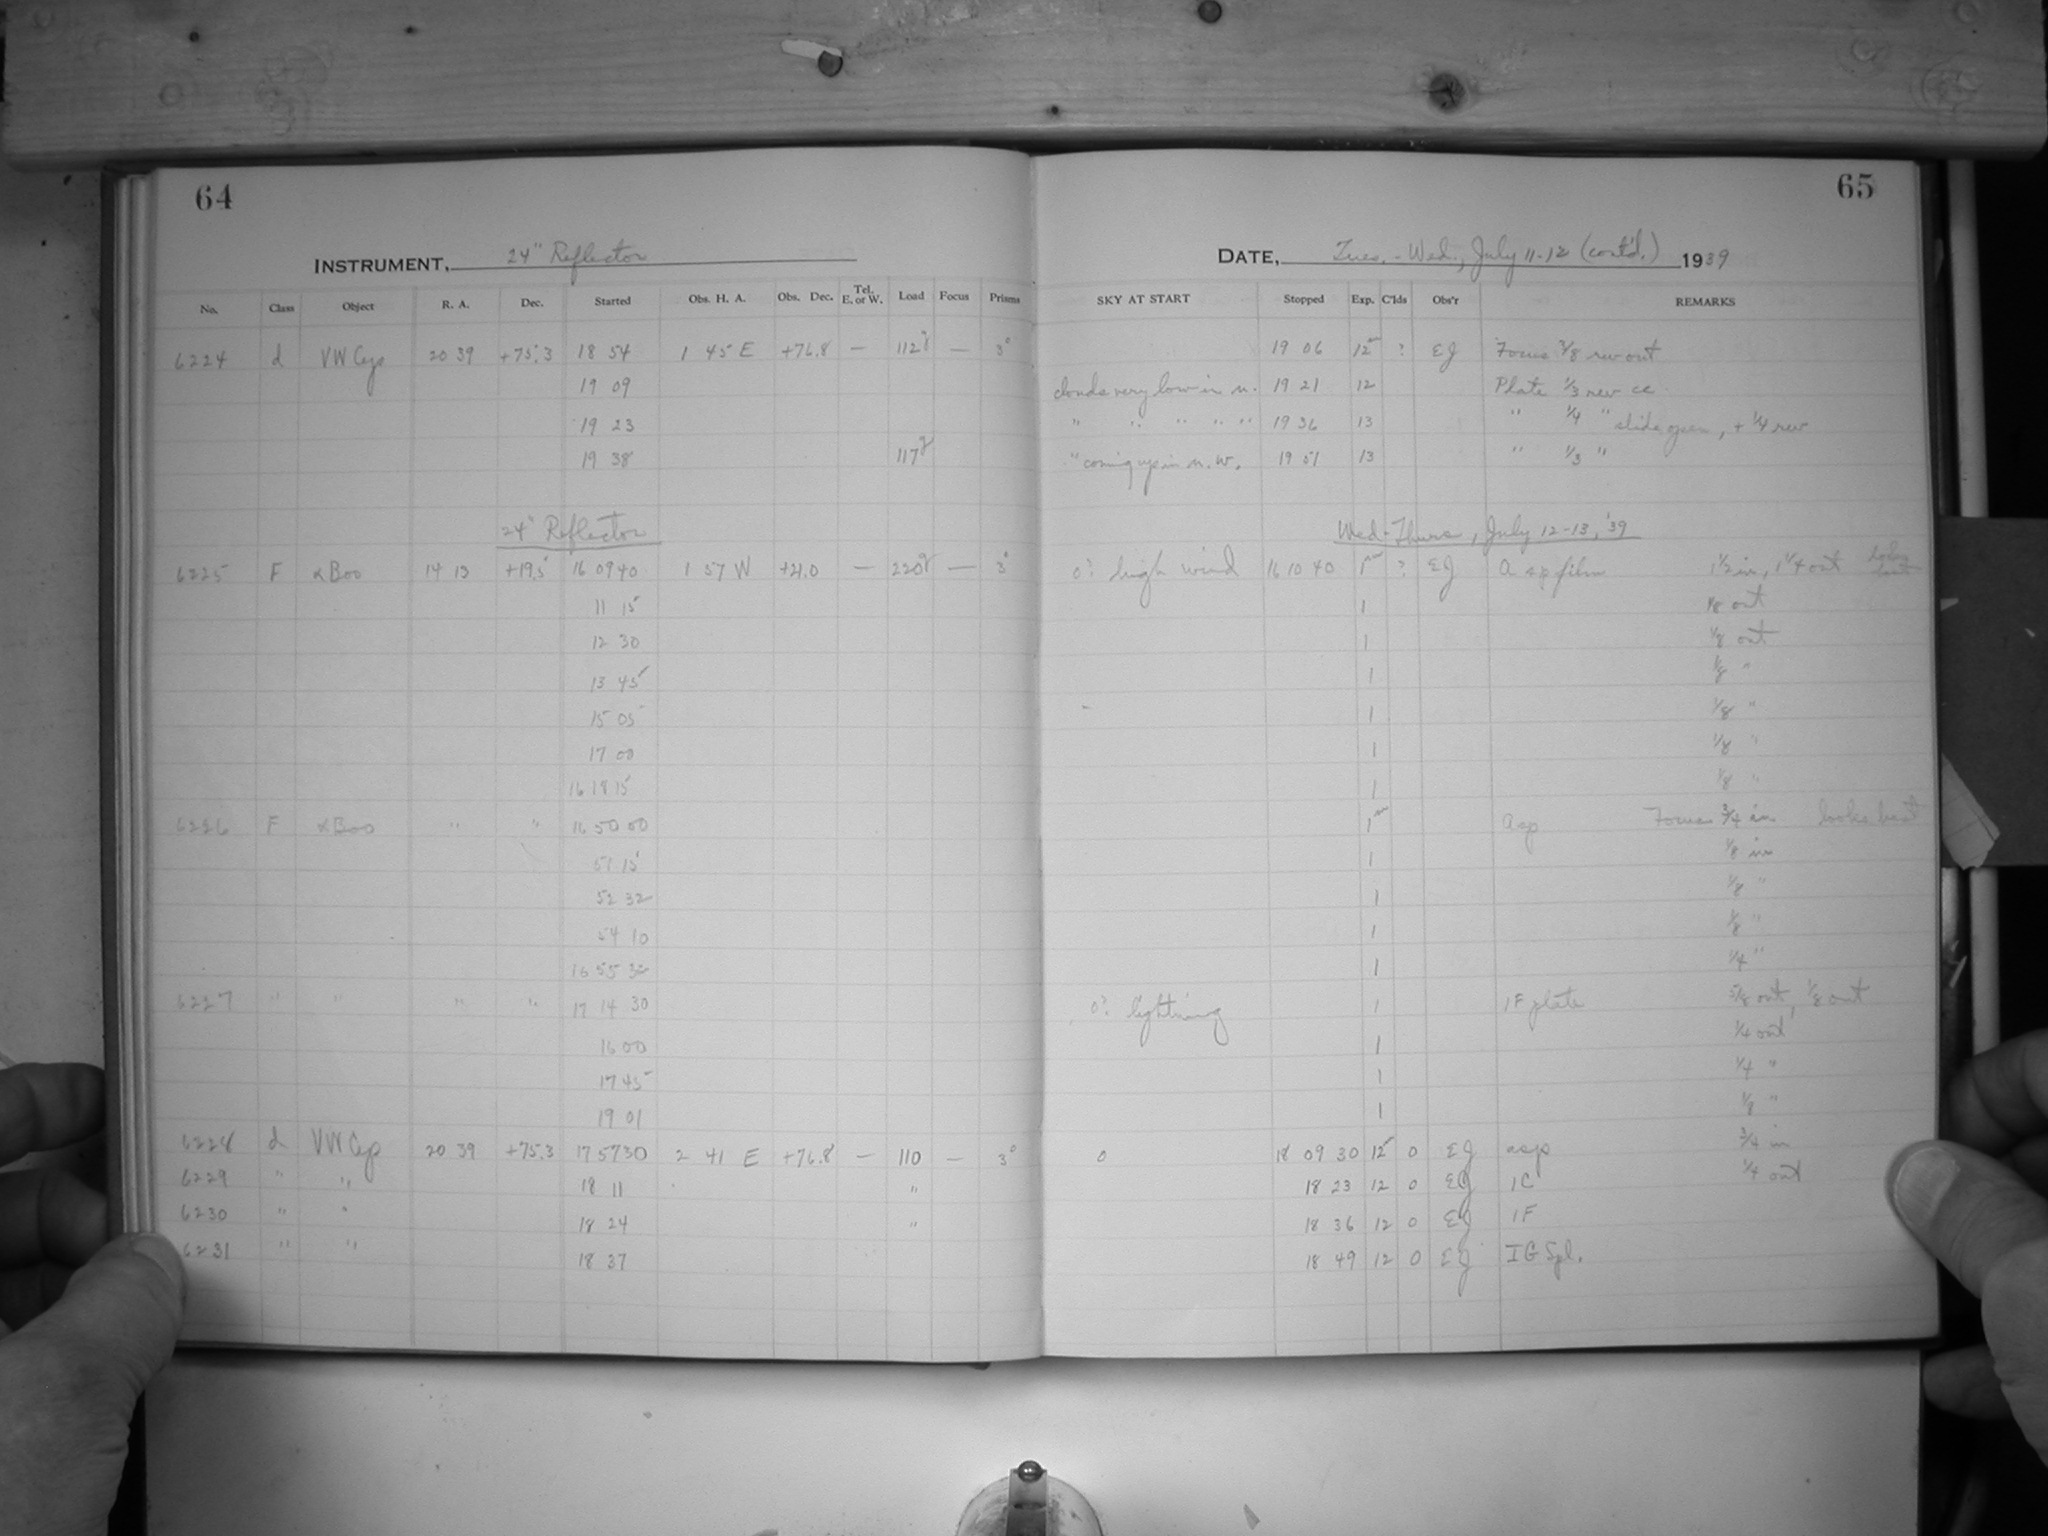 64
INSTRUMENT, 24" Reflector
No. Class Object R. A. Dec. Started Obs. H. A. Obs. Dec. Tel. E. or W. Load Focus Prisms
6224 d VW Cep 20 39 +75.3 18 54 1 45 E +76.8 — 112g — 3°
19 09
19 23
19 38 117g
24" Reflector
6225 F α Boo 14 13 +19.5 16 09 40 1 57 W +21.0 — 220g — 3°
11 15
12 30
13 45
15 05
17 00
16 18 15
6226 F α Boo " " 16 50 00
51 15
52 32
54 10
16 55 32
6227 " " " " 17 14 30
16 00
17 45
19 01
6228 d VW Cep 20 39 +75.3 17 57 30 2 41 E +76.8 — 110 — 3°
6229 " " 18 11 "
6230 " " 18 24 "
6231 " " 18 37
65
DATE, Tues. - Wed., July 11-12 (cont'd.) 1939
SKY AT START Stopped Exp. C'lds Obs'r REMARKS
19 06 12m ? EJ Focus 3/8 rev out
clouds very low in n. 19 21 12 Plate 1/3 rev cc
" " " " " 19 36 13 " 1/4 " slide open, + 1/4 rev
" coming up in n. W. 19 51 13 " 1/3 "
Wed-Thurs, July 12-13, '39
0? high wind 16 10 40 1m ? EJ a sp film 1 1/2 in, 1 1/4 out
1 1/8 out
1 1/8 out
1 1/8 "
1 1/8 "
1 1/8 "
1 1/8 "
1m asp Focus 3/4 in looks best
1 1/8 in
1 1/8 "
1 1/8 "
1 1/4 "
0? lightning 1 1F plate 5/8 out, 1/8 out
1 1/4 out
1 1/4 "
1 1/8 "
0 18 09 30 12 0 EJ asp 3/4 in
18 23 12 0 EJ 1C 1/4 out
18 36 12 0 EJ 1F
18 49 12 0 EJ IG Spl.